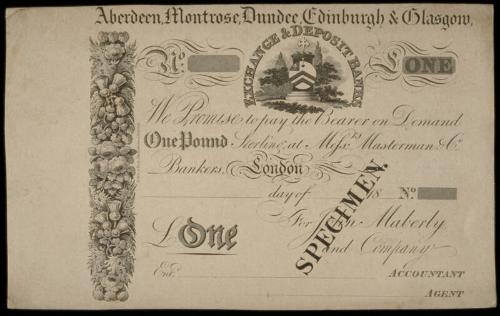 Aberdeen, Montrose, Dundee, Edinburgh & Glasgow,
EXCHANGE & DEPOSIT BANKS
No. £ ONE
We Promise to pay the Bearer on Demand
One Pound Sterling at Messrs. Masterman & Co.
Bankers, London
day of 18 No.
For John Maberly
£ One and Company
SPECIMEN.
Entd. ACCOUNTANT
AGENT